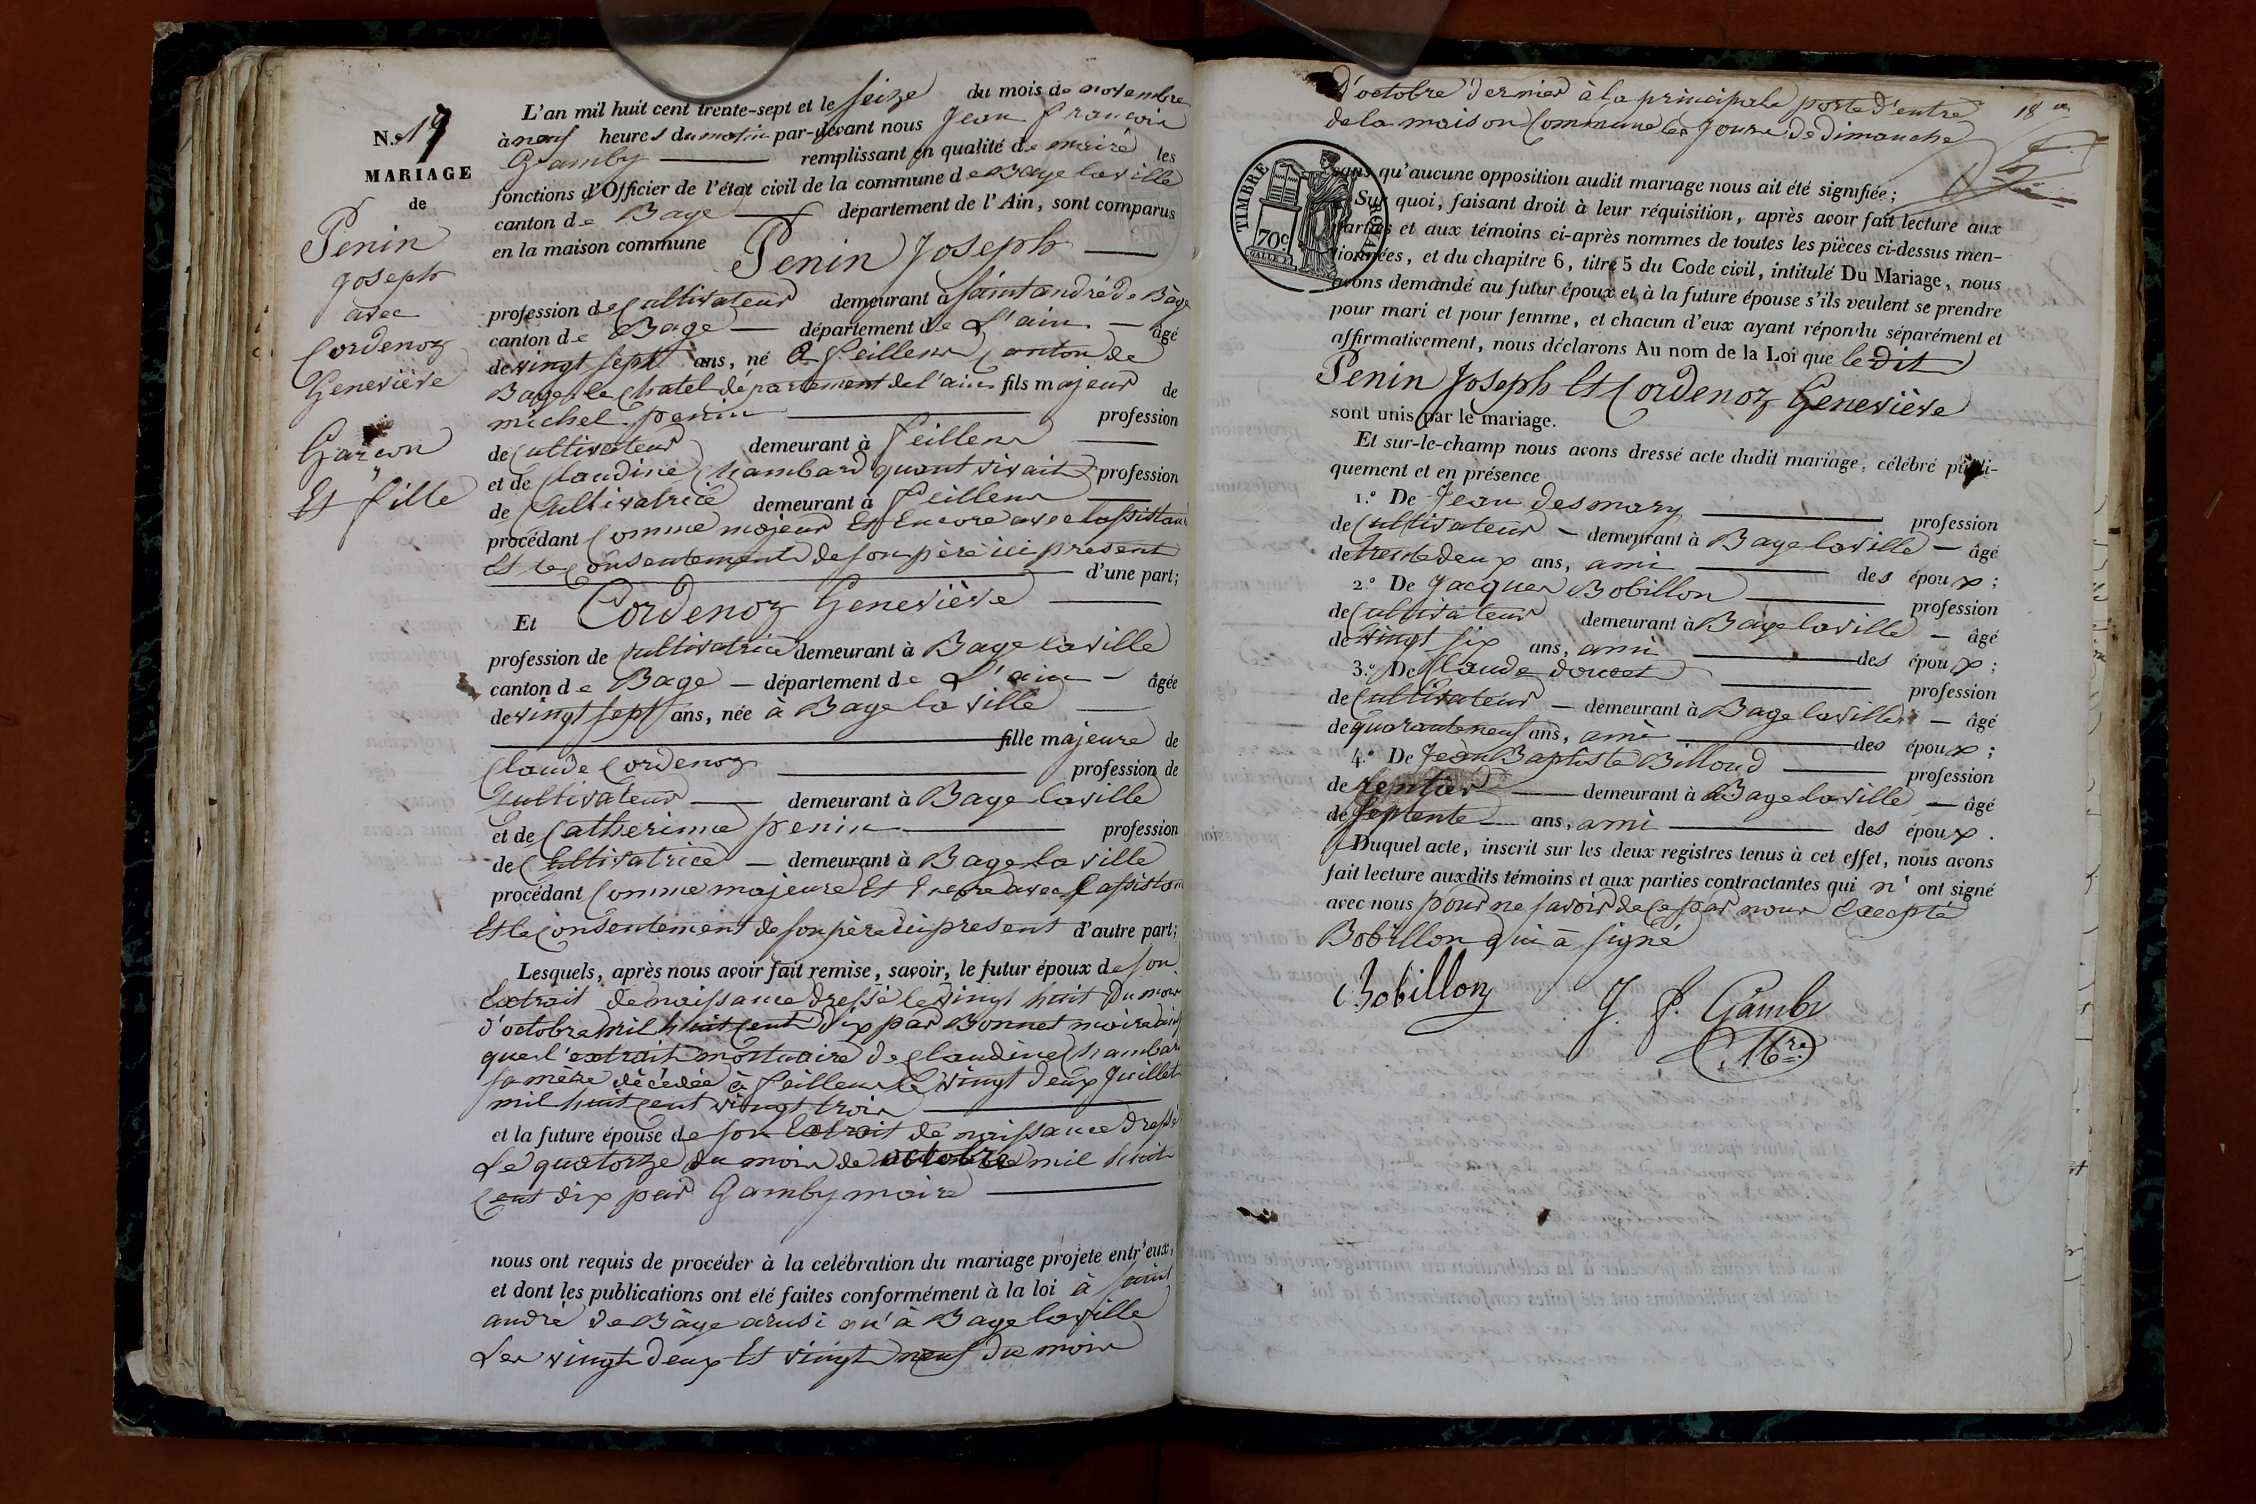 N.o 19
MARIAGE
de
Penin
Joseph
avec
Cordenoz
Geneviève
Garçon
Et fille
L'an mil huit cent trente-sept et le seize du mois de novembre
à neuf heures du matin par-devant nous Jean françois
Gamby remplissant en qualité de maire les
fonctions d'Officier de l'état civil de la commune de Bage la ville
canton de Bage département de l'Ain, sont comparus
en la maison commune Penin Joseph
profession de Cultivateur demeurant à saint andré de Bâge
canton de Bage département de L'ain âgé
de vingt sept ans, né à feillens Canton de
Bage le Chatel département de l'ain fils majeur de
michel penin profession
de Cultivateur demeurant à feillens
et de Claudine Chambard quant vivait profession
de Cultivatrice demeurant à feillens
procédant Comme majeur Et Encore avec lassistance
Et le Consentement de son père ici présent
d'une part;
Et Cordenoz Geneviève
profession de Cultivatrice demeurant à Bage la ville
canton de Bage département de L'ain âgée
de vingt sept ans, née à Bage la ville
fille majeure de
Claude Cordenoz profession de
Cultivateur demeurant à Bage la ville
et de Catherinne penin profession
de Cultivatrice demeurant à Bage la ville
procédant Comme majeure Et Encore avec l'assistance
Et le Consentement de son père ici present d'autre part;
Lesquels, après nous avoir fait remise, savoir, le futur époux de son
Extrait de naissance dressé le vingt huit du mois
d'octobre mil huit Cent dix par Bonnet maire ainsi
que l'extrait mortuaire de Claudine Chambard
sa mère décédée à feillens le vingt deux Juillet
mil huit Cent vingt trois
et la future épouse de son Extrait de naissance dressé
Le quatorze du mois de octobre mil huit
Cent dix par Gamby maire
nous ont requis de procéder à la celébration du mariage projeté entr'eux,
et dont les publications ont été faites conformément à la loi à saint
andré de Bâge ainsi qu'à Bage la ville
Les vingt deux Et vingt neuf du mois
d'octobre dernier à la principale porte d'entré
de la maison Commune les Jours de dimanche
18
TIMBRE
ROYAL
70c.
sans qu'aucune opposition audit mariage nous ait été signifiée;
Sur quoi, faisant droit à leur réquisition, après avoir fait lecture aux
parties et aux témoins ci-après nommes de toutes les pièces ci-dessus men-
tionnées, et du chapitre 6, titre 5 du Code civil, intitulé Du Mariage, nous
avons demandé au futur époux et à la future épouse s'ils veulent se prendre
pour mari et pour femme, et chacun d'eux ayant répondu séparément et
affirmativement, nous déclarons Au nom de la Loi que le dit
Penin Joseph Et Cordenoz Geneviève
sont unis par le mariage.
Et sur-le-champ nous avons dressé acte dudit mariage, célébré publi-
quement et en présence
1.o De Jean desmary profession
de Cultivateur demeurant à Bage la ville âgé
de trente deux ans, ami des époux;
2.o De Jacques Bobillon profession
de Cultivateur demeurant à Bage la ville âgé
de vingt six ans, ami des époux;
3.o De Claude doucet profession
de Cultivateur demeurant à Bage la ville âgé
de quarante neuf ans, ami des époux;
4.o De Jean Baptiste Billoud profession
de rentier demeurant à Bage la ville âgé
de septente ans, ami des époux.
Duquel acte, inscrit sur les deux registres tenus à cet effet, nous avons
fait lecture auxdits témoins et aux parties contractantes qui n'ont signé
avec nous pour ne savoir de Ce par nous Excepté
Bobillon qui à signé
Bobillon J. f. Gamby
Mre